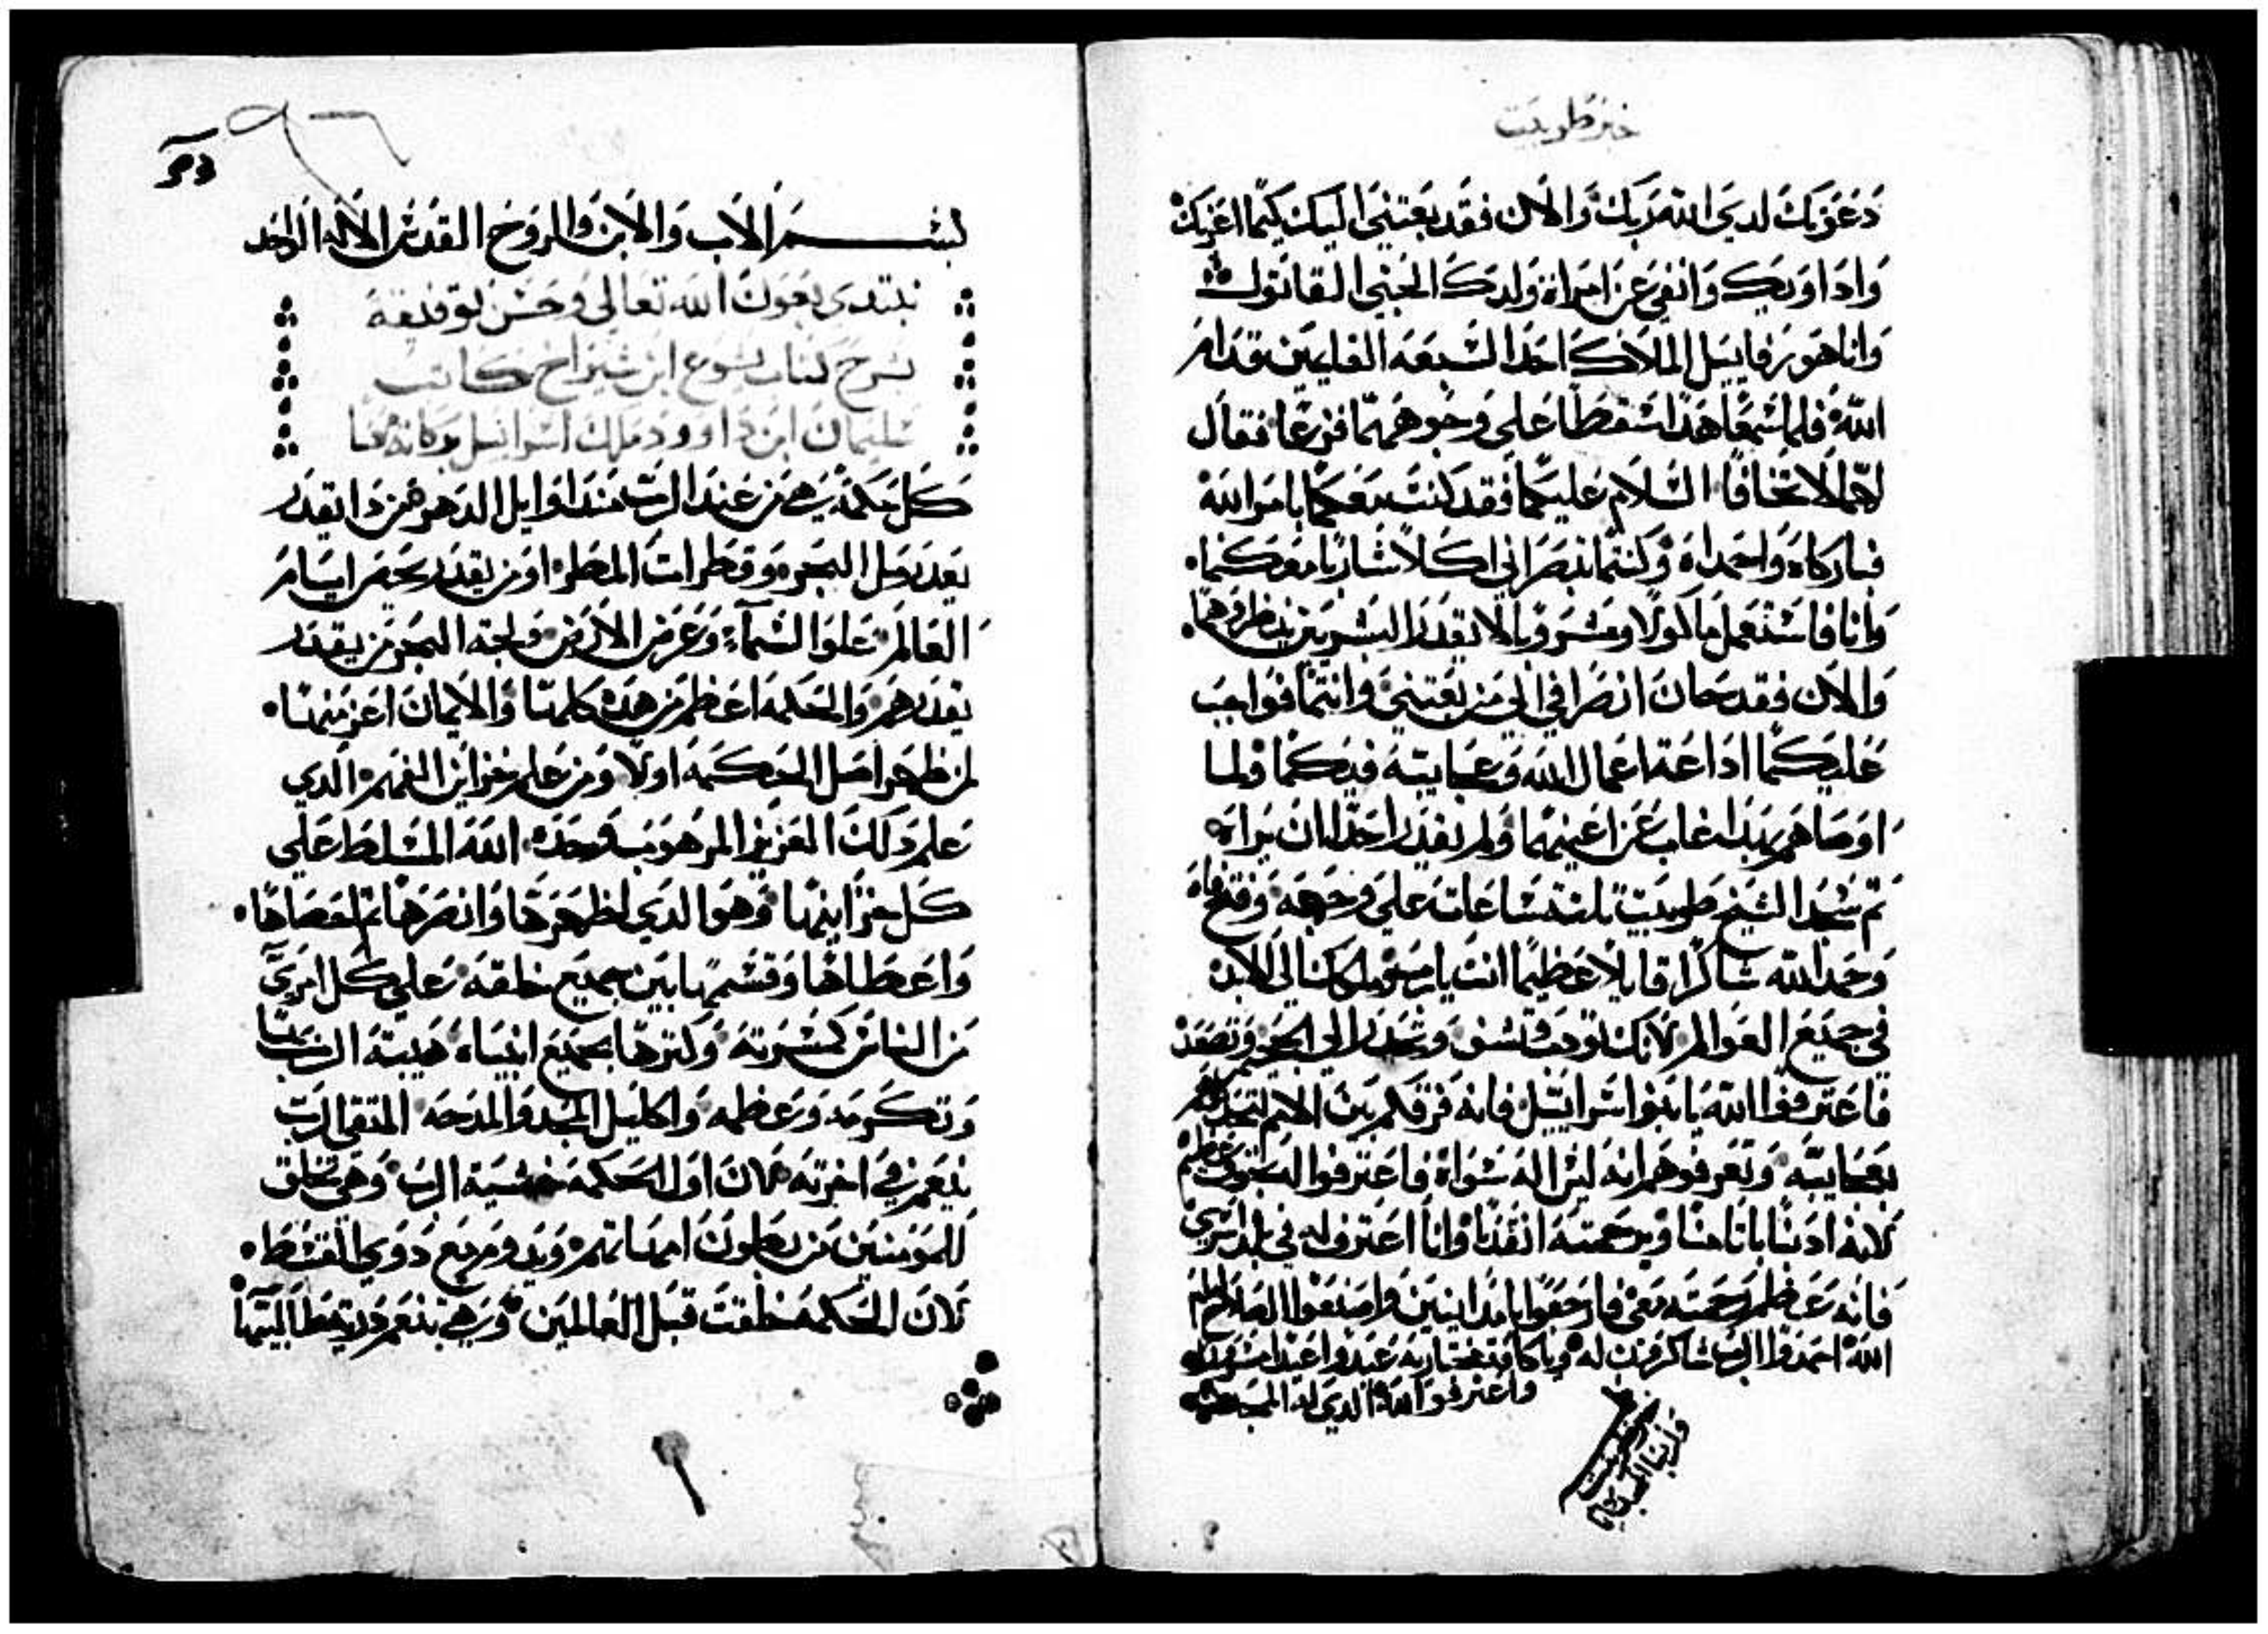 خبر طوبيت
دعوتك لدي الله ربك والان فقد بعتني اليك كيما اعزيك
واداويك وانفي عن امراة ولدك الجني القاتول
وانا هو رفاييل الملاك احد السبعه القايمين قدام
الله فلما سمعا هدا سقطا علي وجوههما فزعا فقال
لهما لا تخافا السلام عليكما فقد كنت معكما بامر الله
فباركاه واحمداه وكنتما تبصراني اكلا شاربا معكما
وانا فاستعمل ماكولا ومشروبا لا يقدر البشريين ينظروهما
والان فقد حان انصرافي الي من بعتني وانتما فواجب
عليكما اداعة اعمال الله وعجايبه فيكما ولما
اوصاهم بهدا غاب عن اعينهما ولم يقدر احدا ان يراه
تم سجدا الشيخ طوبيت تلتة ساعات علي وجهه وفتح فاه
وحمد الله شاكرا قايلا عظيما انت يا رب وملكك الي الابد
في جميع العوالم لانك تودب وتشفي وتحدر الي الجحيم وتصعد
فاعترفوا لله يا بنوا اسراييل فانه فرقكم بين الامم
بعجايبه وتعرفوهم انه ليس اله سواه فاعترفوا
لانه ادبنا باتامنا وبرحمته انقدنا وانا اعترف له في بلد اسري
فانه عظم رحمته معي فارجعوا يا مدانيين واصنعوا العدل امام
الله احمدوا الرب شاكرين له ويا كافة مختاريه عيدوا عيدا
واعترفوا لله الدي له المجد
بسم الاب والابن والروح القدس الاله الواحد
نبتدي بعون الله تعالي وحسن توفيقه
بشرح كتاب يشوع ابن شيراخ كاتب
سليمان ابن داوود ملك اسراييل بركاته معنا
كل حكمة هي من عند الرب مند اوايل الدهر فمن دا يقدر
يعد رمل البحر وقطرات المطر او من يقدر يحصر ايام
العالم علو السماء وعرض الارض ولجة البحر من يقدر
يقدرهم والحكمه اعظم من هده كلها والايمان اعز منها
لمن ظهر اصل الحكمه اولا ومن علم خزاين الفهم الدي
علم دلك العزيز المرهوب وحده الله المسلط علي
كل خزاينها وهو الدي اظهرها وابصرها تم احصاها
واعطاها وقسمها بين جميع خلقه علي كل امري
من الناس كمسرته وكترها بجميع انبياه هيبة الرب
وتكرمه وعظمه واكليل المجد والمدحه المتقي الرب
ينعم في اخرته لان اول الحكمه خشية الرب وهي تخلق
للمومنين من بطون امهاتهم وتدوم مع دوي القسط
لان الحكمه خلقت قبل العالمين وهي تنعم طالبيها